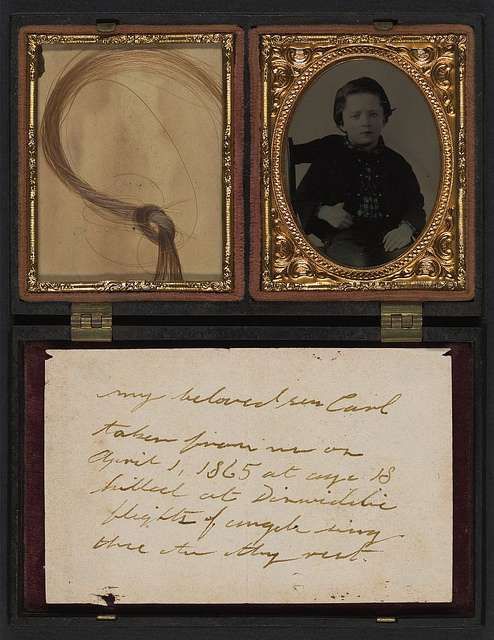 my beloved son Carl
taken from me on
April 1, 1865 at age 18
killed at Dinwiddie
flights of angels sing
thee to thy rest.